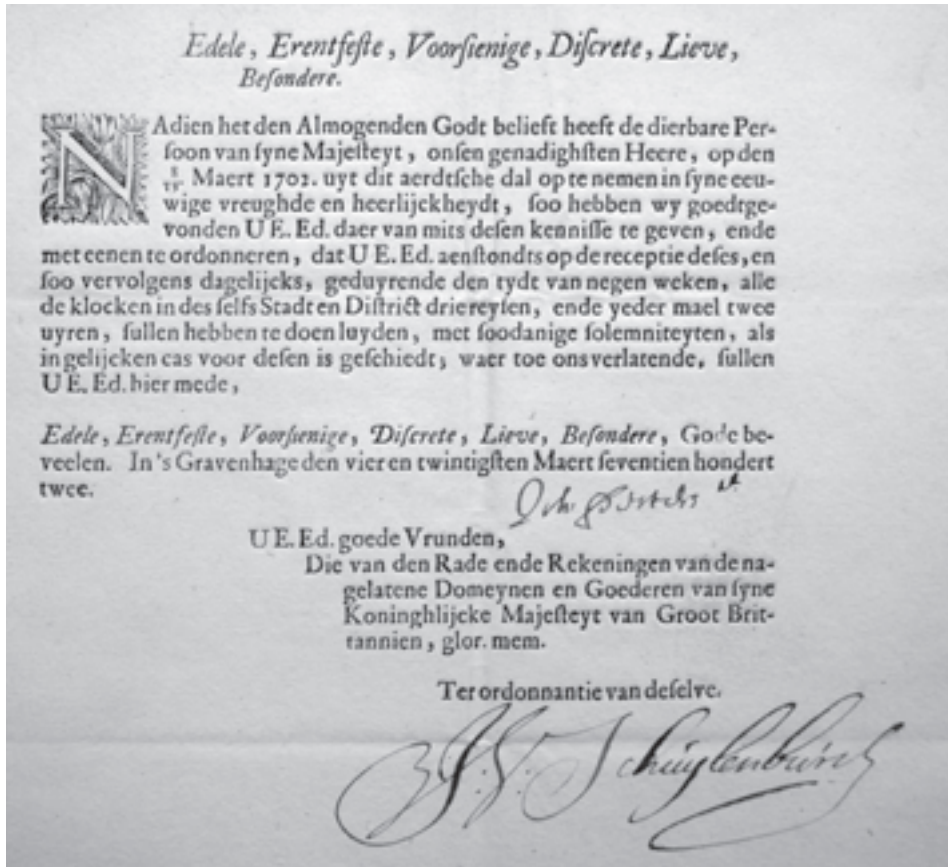 Edele, Erentfeſte, Voorſienige, Diſcrete, Lieve,
Beſondere.
NAdien het den Almogenden Godt belieft heeft de dierbare Per-
ſoon van ſyne Majeſteyt, onſen genadighſten Heere, op den
8/19 Maert 1702. uyt dit aerdtſche dal op te nemen in ſyne eeu-
wige vreughde en heerlijckheydt, ſoo hebben wy goedtge-
vonden U E. Ed. daer van mits deſen kenniſſe te geven, ende
met eenen te ordonneren, dat U E. Ed. aenſtondts op de receptie deſes, en
ſoo vervolgens dagelijcks, geduyrende den tydt van negen weken, alle
de klocken in des ſelfs Stadt en Diſtrict drie reyſen, ende yeder mael twee
uyren, ſullen hebben te doen luyden, met ſoodanige ſolemniteyten, als
in gelijcken cas voor deſen is geſchiedt; waer toe ons verlatende, ſullen
U E. Ed. hier mede,
Edele, Erentfeſte, Voorſienige, Diſcrete, Lieve, Beſondere, Gode be-
veelen. In 's Gravenhage den vier en twintigſten Maert ſeventien hondert
twee.
U E. Ed. goede Vrunden,
Die van den Rade ende Rekeningen van de na-
gelatene Domeynen en Goederen van ſyne
Koninghlijcke Majeſteyt van Groot Brit-
tannien, glor. mem.
Ter ordonnantie van deſelve.
Schuylenburch